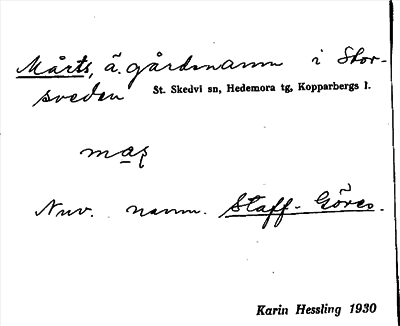 Mårts, ä. gårdsnamn i Stor-
sveden St. Skedvi sn, Hedemora tg, Kopparbergs l.
Nuv. namn. Staff-Göres.
Karin Hessling 1930